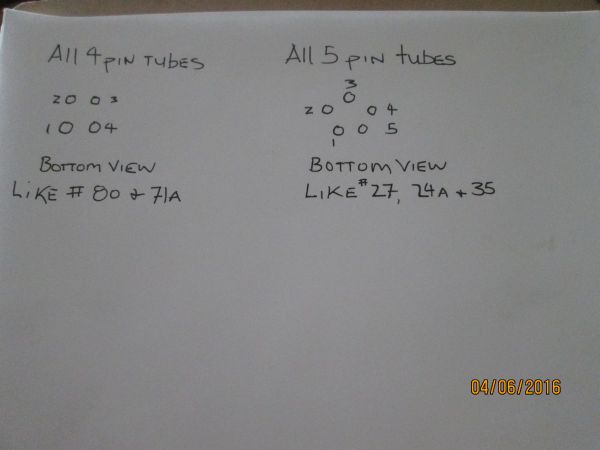 All 4 PIN TUBES
2 0 0 3
1 0 0 4
BOTTOM VIEW
LIKE # 80 & 71A
All 5 PIN tubes
3
0
2 0 0 4
0 0 5
1
BOTTOM VIEW
LIKE # 27, 24A + 35
04/06/2016